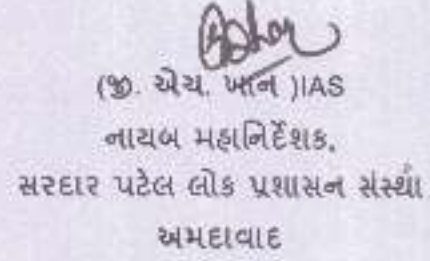 (જી. એચ. ખાન )IAS
નાયબ મહાનિર્દેશક,
સરદાર પટેલ લોક પ્રશાસન સંસ્થા
અમદાવાદ